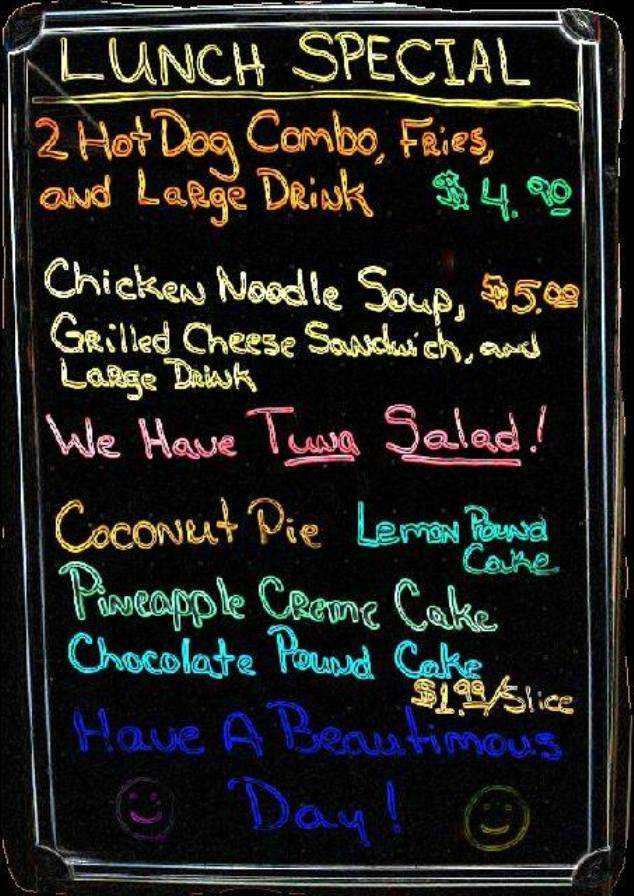 LUNCH SPECIAL
2 Hot Dog Combo, Fries,
and Large Drink $4.90
Chicken Noodle Soup, $5.00
Grilled Cheese Sandwich, and
Large Drink
We Have Tuna Salad!
Coconut Pie Lemon Pound
Cake
Pineapple Creme Cake
Chocolate Pound Cake
$1.99/Slice
Have A Beautimous
Day!